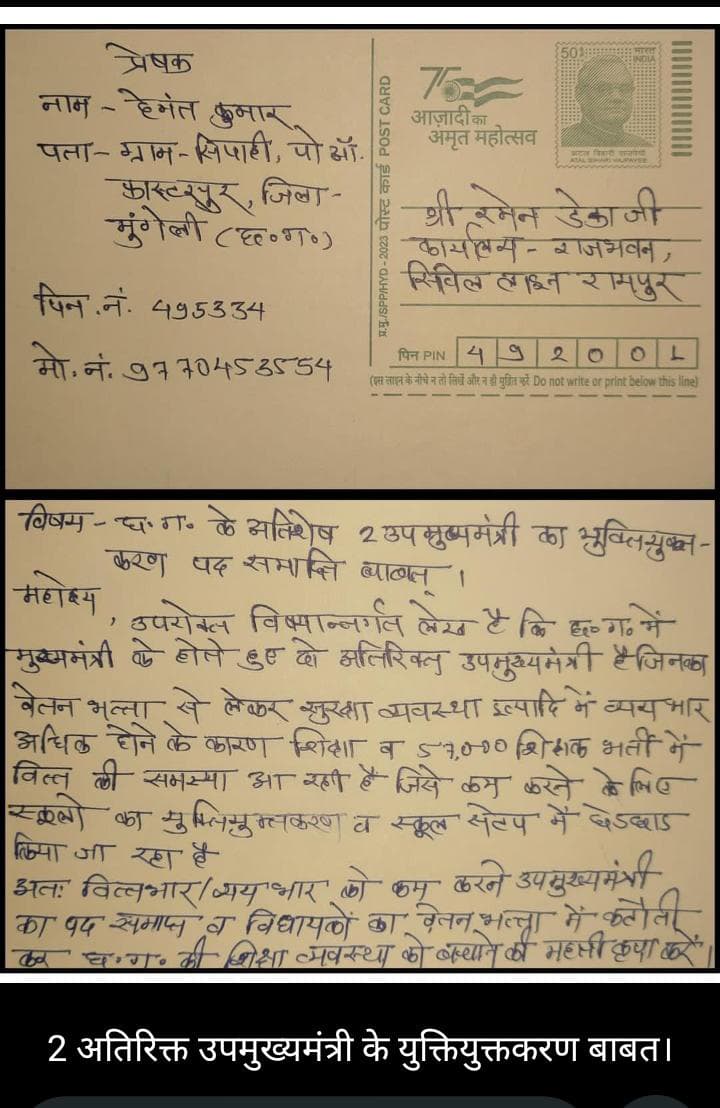 प्रेषक
नाम - हेमंत कुमार
पता - ग्राम - सिपाही, पो ऑ.
जिला -
मुंगेली (छ०ग०)
पिन.नं. 495334
मो.नं. 9770453554
प्र.मु./SPP/HYD - 2023 पोस्ट कार्ड POST CARD
75
आज़ादी का
अमृत महोत्सव
50
भारत
INDIA
अटल बिहारी वाजपेयी
ATAL BIHARI VAJPAYEE
श्री रमेन डेका जी
कार्यालय - राजभवन,
सिविल लाइन रायपुर
पिन PIN 4 9 2 0 0 1
(इस लाइन के नीचे न तो लिखें और न ही मुद्रित करें Do not write or print below this line)
विषय - छ.ग. के अतिशेष 2 उपमुख्यमंत्री का युक्तियुक्त-
करण पद समाप्ति बाबत् ।
महोदय
, उपरोक्त विषयान्तर्गत लेख है कि छ०ग० में
मुख्यमंत्री के होते हुए दो अतिरिक्त उपमुख्यमंत्री है जिनका
वेतन भत्ता से लेकर सुरक्षा व्यवस्था इत्यादि में व्यय भार
अधिक होने के कारण शिक्षा व 57,000 शिक्षक भर्ती में
वित्त की समस्या आ रही है जिसे कम करने के लिए
स्कूलो का युक्तियुक्तकरण व स्कूल सेटप में छेडछाड
किया जा रहा है
अतः वित्तभार/व्यय भार को कम करने उपमुख्यमंत्री
का पद समाप्त व विधायकों का वेतन भत्ता में कटौती
कर छ.ग. की शिक्षा व्यवस्था को बचाने की महती कृपा करें।
2 अतिरिक्त उपमुख्यमंत्री के युक्तियुक्तकरण बाबत।